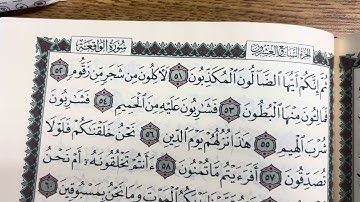 الجزء السابع والعشرون سورة الواقعة
ثم إنكم أيها الضالون المكذبون ٥١ لآكلون من شجر من زقوم ٥٢
فمالئون منها البطون ٥٣ فشاربون عليه من الحميم ٥٤ فشاربون
شرب الهيم ٥٥ هذا نزلهم يوم الدين ٥٦ نحن خلقناكم فلولا
تصدقون ٥٧ أفرءيتم ما تمنون ٥٨ ءأنتم تخلقونه أم نحن
الموت وما نحن بمسبوقين ٦٠